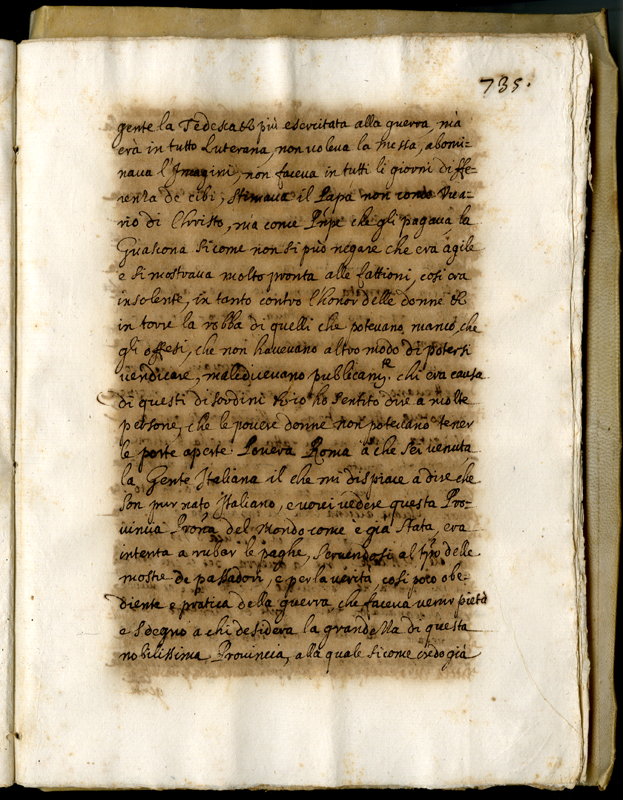 735.
gente la Tedesca et più esercitata alla guerra, mà
erà in tutto Luterana, non voleva la messa, abomi-
nava l'Imagini, non faceva in tutti li giorni diffe-
renza de cibi, Stimava il Papa non come Vica-
rio di Christo, mà come Pnpe che gli pagava la
Guascona si come non si può negare che era agile
e si mostrava molto pronta alle fattioni, così era
insolente, in tanto contro l'honor delle donne et
in torre la robba di quelli che potevano manco, che
gli offesi, che non havevano altro modo di potersi
vendicare, maledicevano publicamte chi era causa
di questi disordini et io hò sentito dire à molte
persone, che le povere donne non potevano tener
le porte aperte Povera Roma à che sei venuta
la Gente Italiana il che mi dispiace à dire che
son pur nato Italiano, e vorei vedere questa Pro-
vincia Prona del Mondo come è già stata, era
intenta a rubar le paghe, servendosi al tpo delle
mostre de passadori, e per la verità così poco obe-
diente e pratica della guerra che faceva venir pietà
e sdegno a chi desidera la grandezza di questa
nobilissima Provincia, alla quale si come credo già